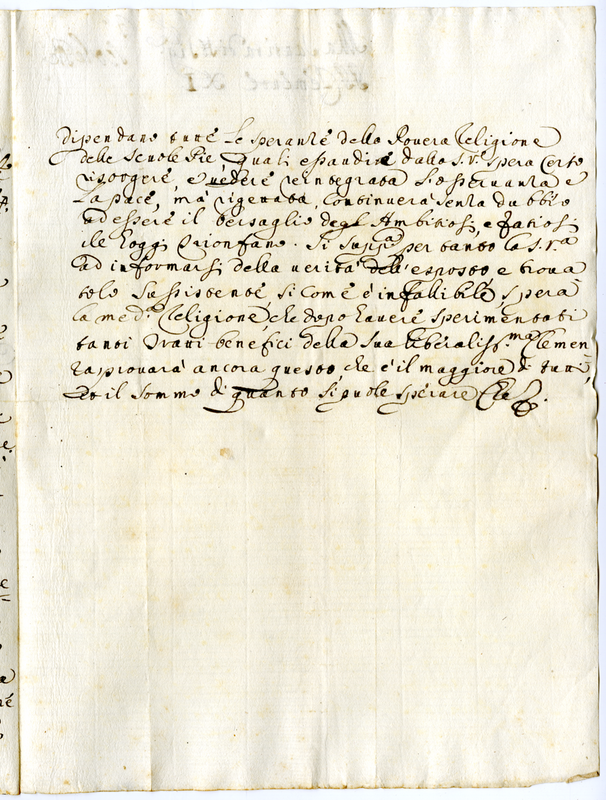 dipendano tutte le speranze della Povera Religione
delle Scuole Pie, quali esaudite dalla S.V. spera certo
risorgere, e vedere reintegrata l'osservanza e
la pace, ma rigettata, continuerà senza dubbio
ad essere il bersaglio degl'Ambitiosi, e fatiosi
che hoggi trionfano. Si supp.ca per tanto la S.V.ra
ad informarsi della verità dell'esposto e trova
tolo sussistente, si come è infallibile spera
la med.a Religione che dopo havere sperimentati
tanti Gravi benefici della sua liberaliss.ma Clemen
za provarà ancora questo che è il maggiore di tutti,
et il sommo di quanto si puole sperare Che &.